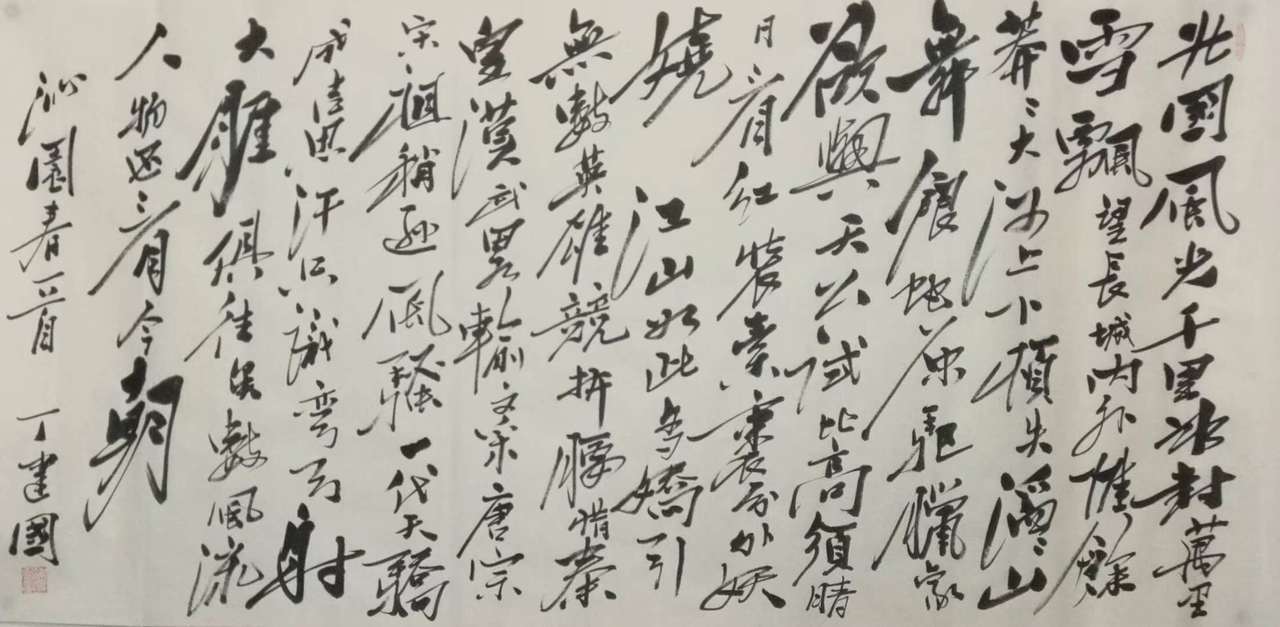 北國風光千里冰封萬里
雪飄望長城内外惟餘
莽〻大河上下頓失滔〻山
舞銀蛇原馳臘象
欲與天公試比高須晴
日看紅裝素裹分外妖
嬈 江山如此多嬌引
無數英雄競折腰惜秦
皇漢武略輸文采唐宗
宋祖稍遜風騷一代天驕
成吉思汗只識彎弓射
大雕俱往矣數風流
人物還看今朝
沁園春一首 丁建國